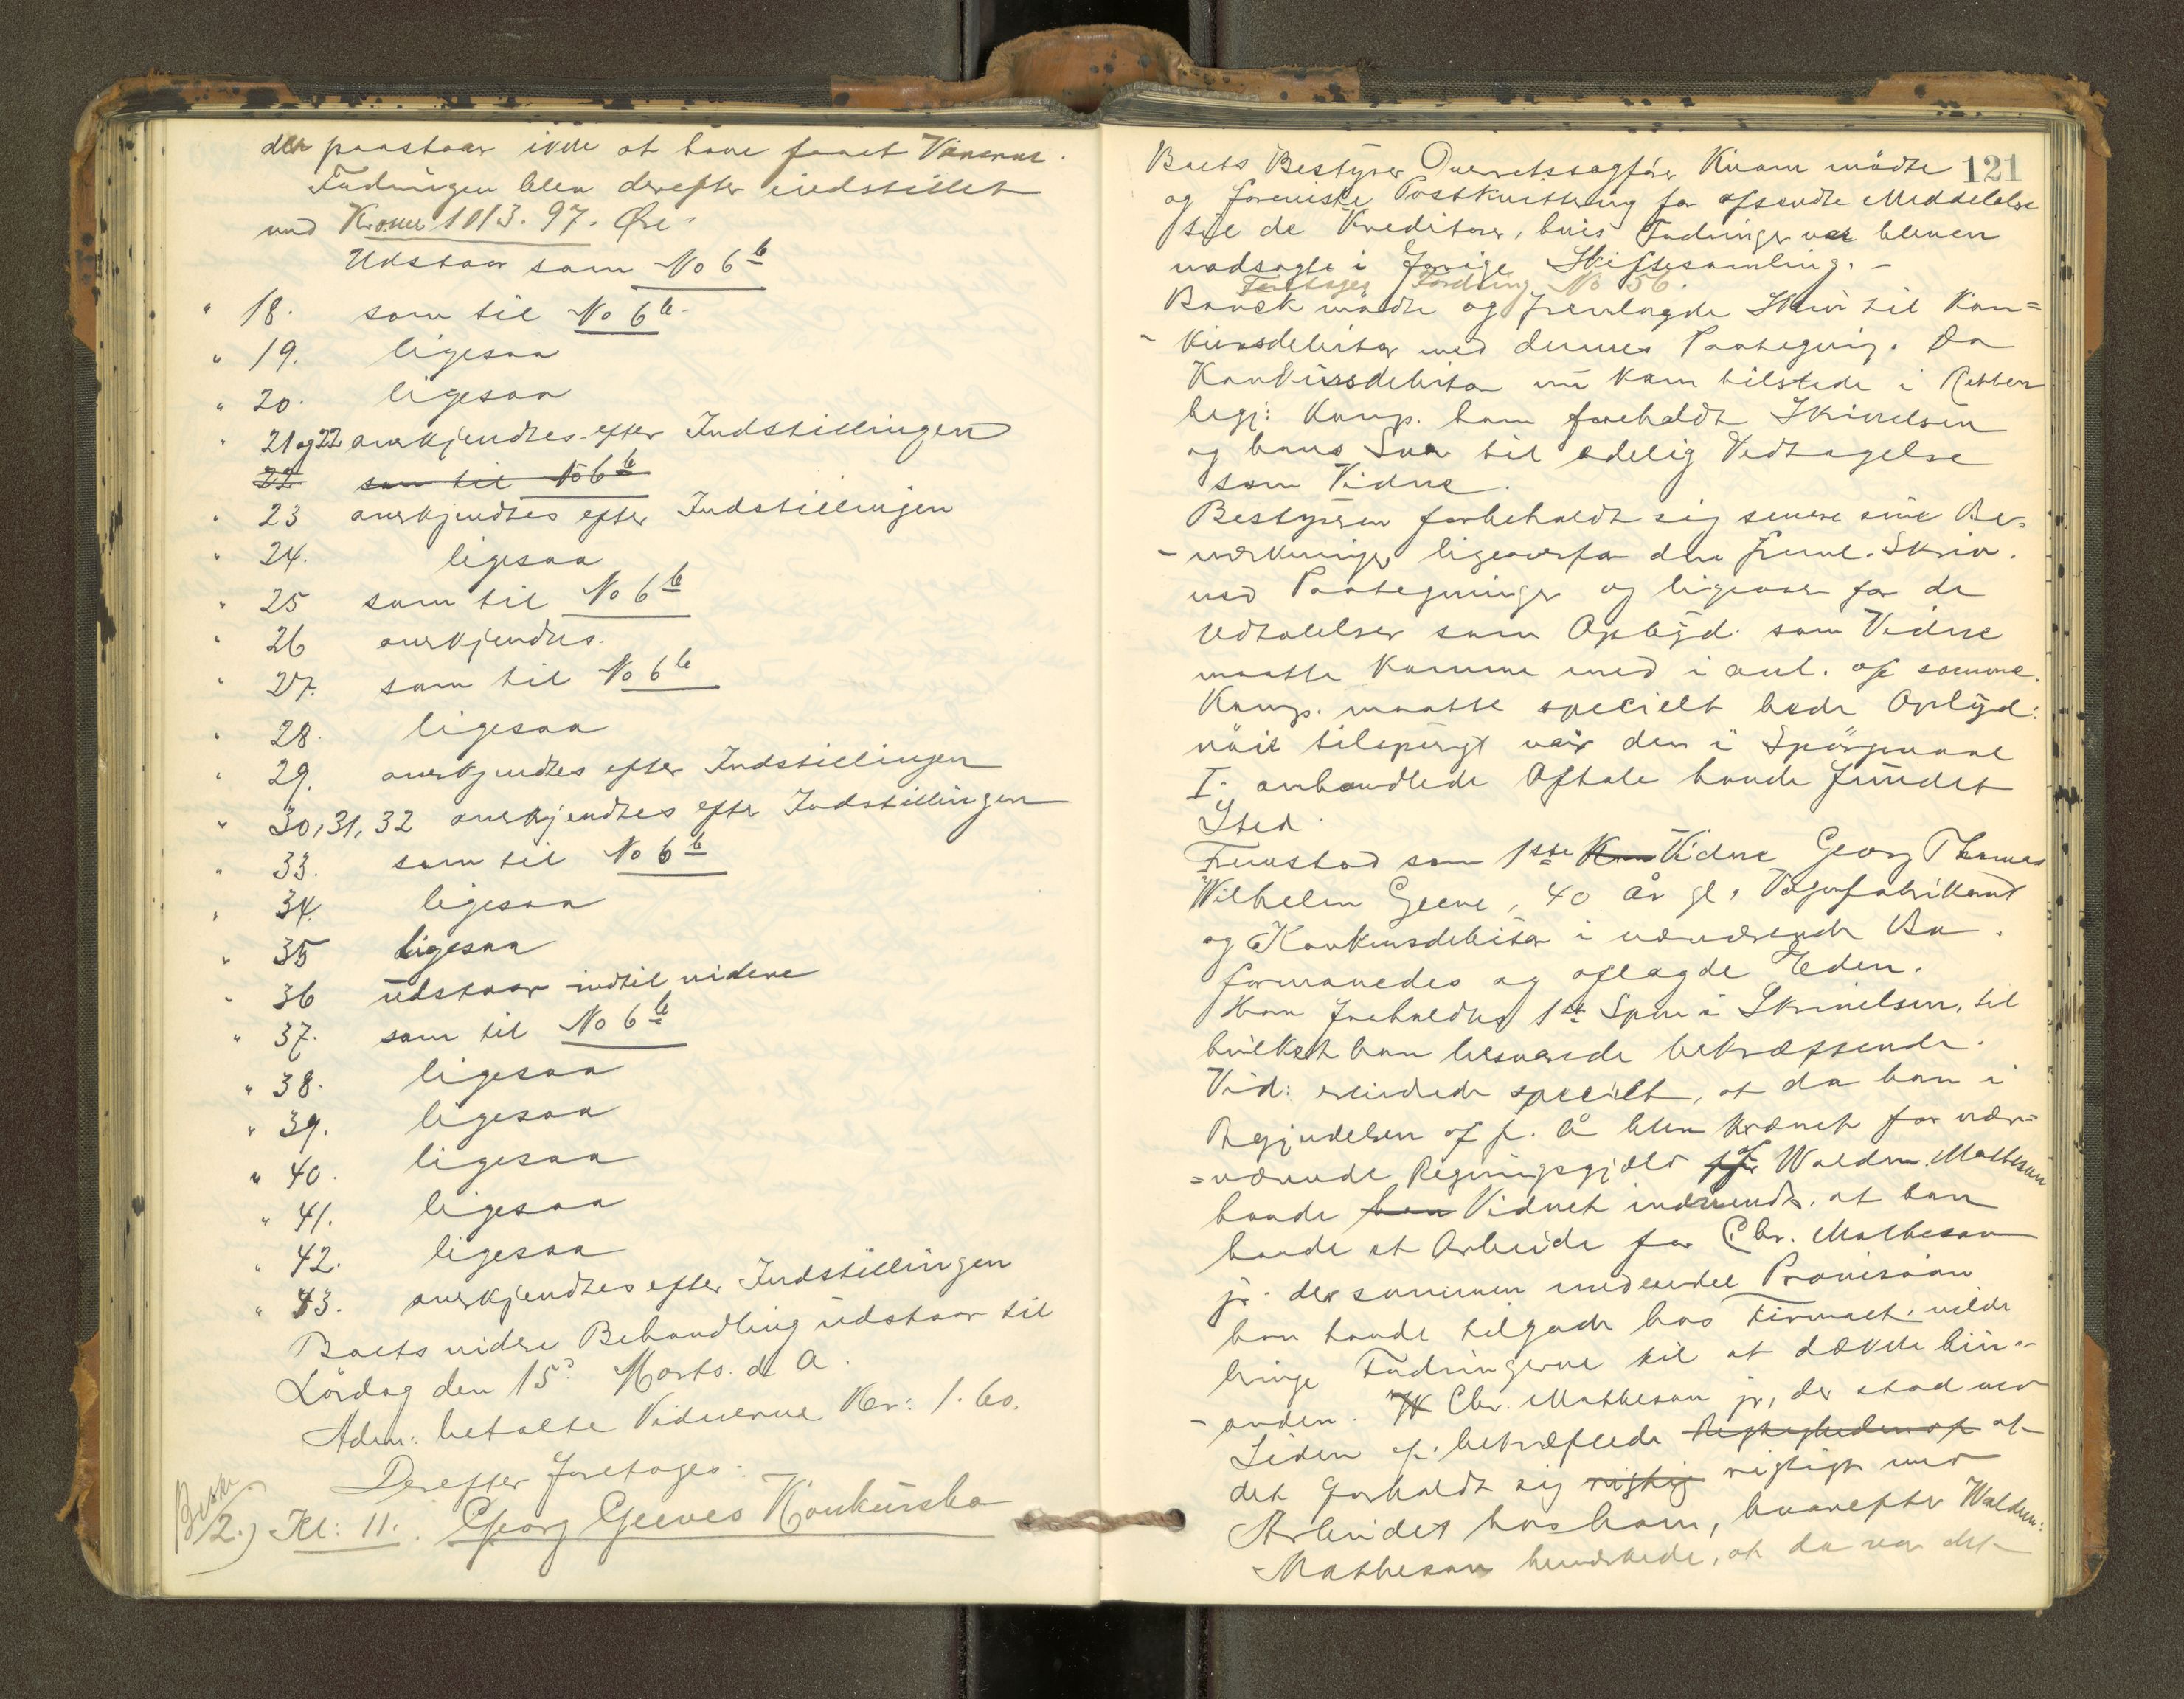 der paastaar ikke at have faaet Varerne.
Fodringen blev derefter indstillet
med Kroner 1013. 97. Øre
Udstaar som No 6 b
" 18. som til No 6 b
" 19. ligesaa
" 20. ligesaa
" 21 og 22 anerkjendtes efter Indstillingen
22 som til No 6 b
" 23 anerkjendtes efter Indstillingen
" 24. ligesaa
" 25 som til No 6 b
" 26 anerkjendtes.
" 27. som til No 6 b
" 28. ligesaa
" 29. anerkjendtes efter Indstillingen
" 30, 31, 32 anerkjendtes efter Indstillingen
" 33. som til No 6 b
" 34. ligesaa
" 35 ligesaa
" 36 udstaar indtil videre
" 37. som til No 6 b
" 38. ligesaa
" 39. ligesaa
" 40. ligesaa
" 41. ligesaa
" 42. ligesaa
" 43. anerkjendtes efter Indstillingen
Boets videre Behandling udstaar til
Lørdag den 15de Marts d. A.
Adm: betalte Vidnerne Kr: 1. 60.
Derefter foretoges:
2.) Kl: 11. Georg Geeves Konkursbo
121
Boets Bestyrer Overretssagfør Kiram mødte
og foreviste Postkvittering for afsendte Meddelelse
til de Kreditorer, hvis Fodringer var bleven
modsagte i forrige Skiftesamling. -
Foretages Fordring No 56.
Bonck mødte og fremlagde Skriv til Kon=
- kursdebitor med dennes Paategning. Da
Konkursdebitor nu kom tilstede i Retten
begj: Komp. ham foreholdt Skrivelsen
og hans Svar til edelig Vedtagelse
som Vidne.
Bestyreren forbeholdt sig senere sine Be-
- mærkninger ligeoverfor den freml. Skriv.
med Paategninger og ligeover for de
Udtalelser som Opbyd. som Vidne
maatte komme med i anl. af samme.
Komp. maatte specielt bede Opbyd:
nøie tilspurgt naar den i Spørgsmaal
I. omhandlede Aftale havde fundet
Sted.
Fremstod som 1ste Vidne Georg Thomas
Wilhelm Geeve, 40 år gl, Vognfabrikant
og Konkursdebitor i nærværende Bo.
formanedes og aflagde Eden.
Han foreholdtes 1ste Spm i Skrivelsen, til
hvilket han besvarede bekræftende.
Vid: erindrede specielt, at da han i
Begyndelsen af f. År blev krævet for nær=
=værende Regningsgjæld af Waldm. Mathesen
havde han Vidnet indvendt, at han
havde et Arbeide for Chr. Mathesen
jr. der sammen med endel Provision
han havde tilgode hos Firmaet vilde
bringe Fodringerne til at dække hin-
- anden. Chr. Mathesen jr, der stod ved
Siden af bekræftede Rigtigheden af at
det forholdt sig rigtig rigtigt med
Arbeidet hos ham, hvorefter Waldem:
Mathesen bemærkede, at da var det